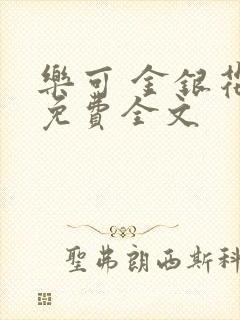 樂可 金銀花
免費全文
聖弗朗西斯科